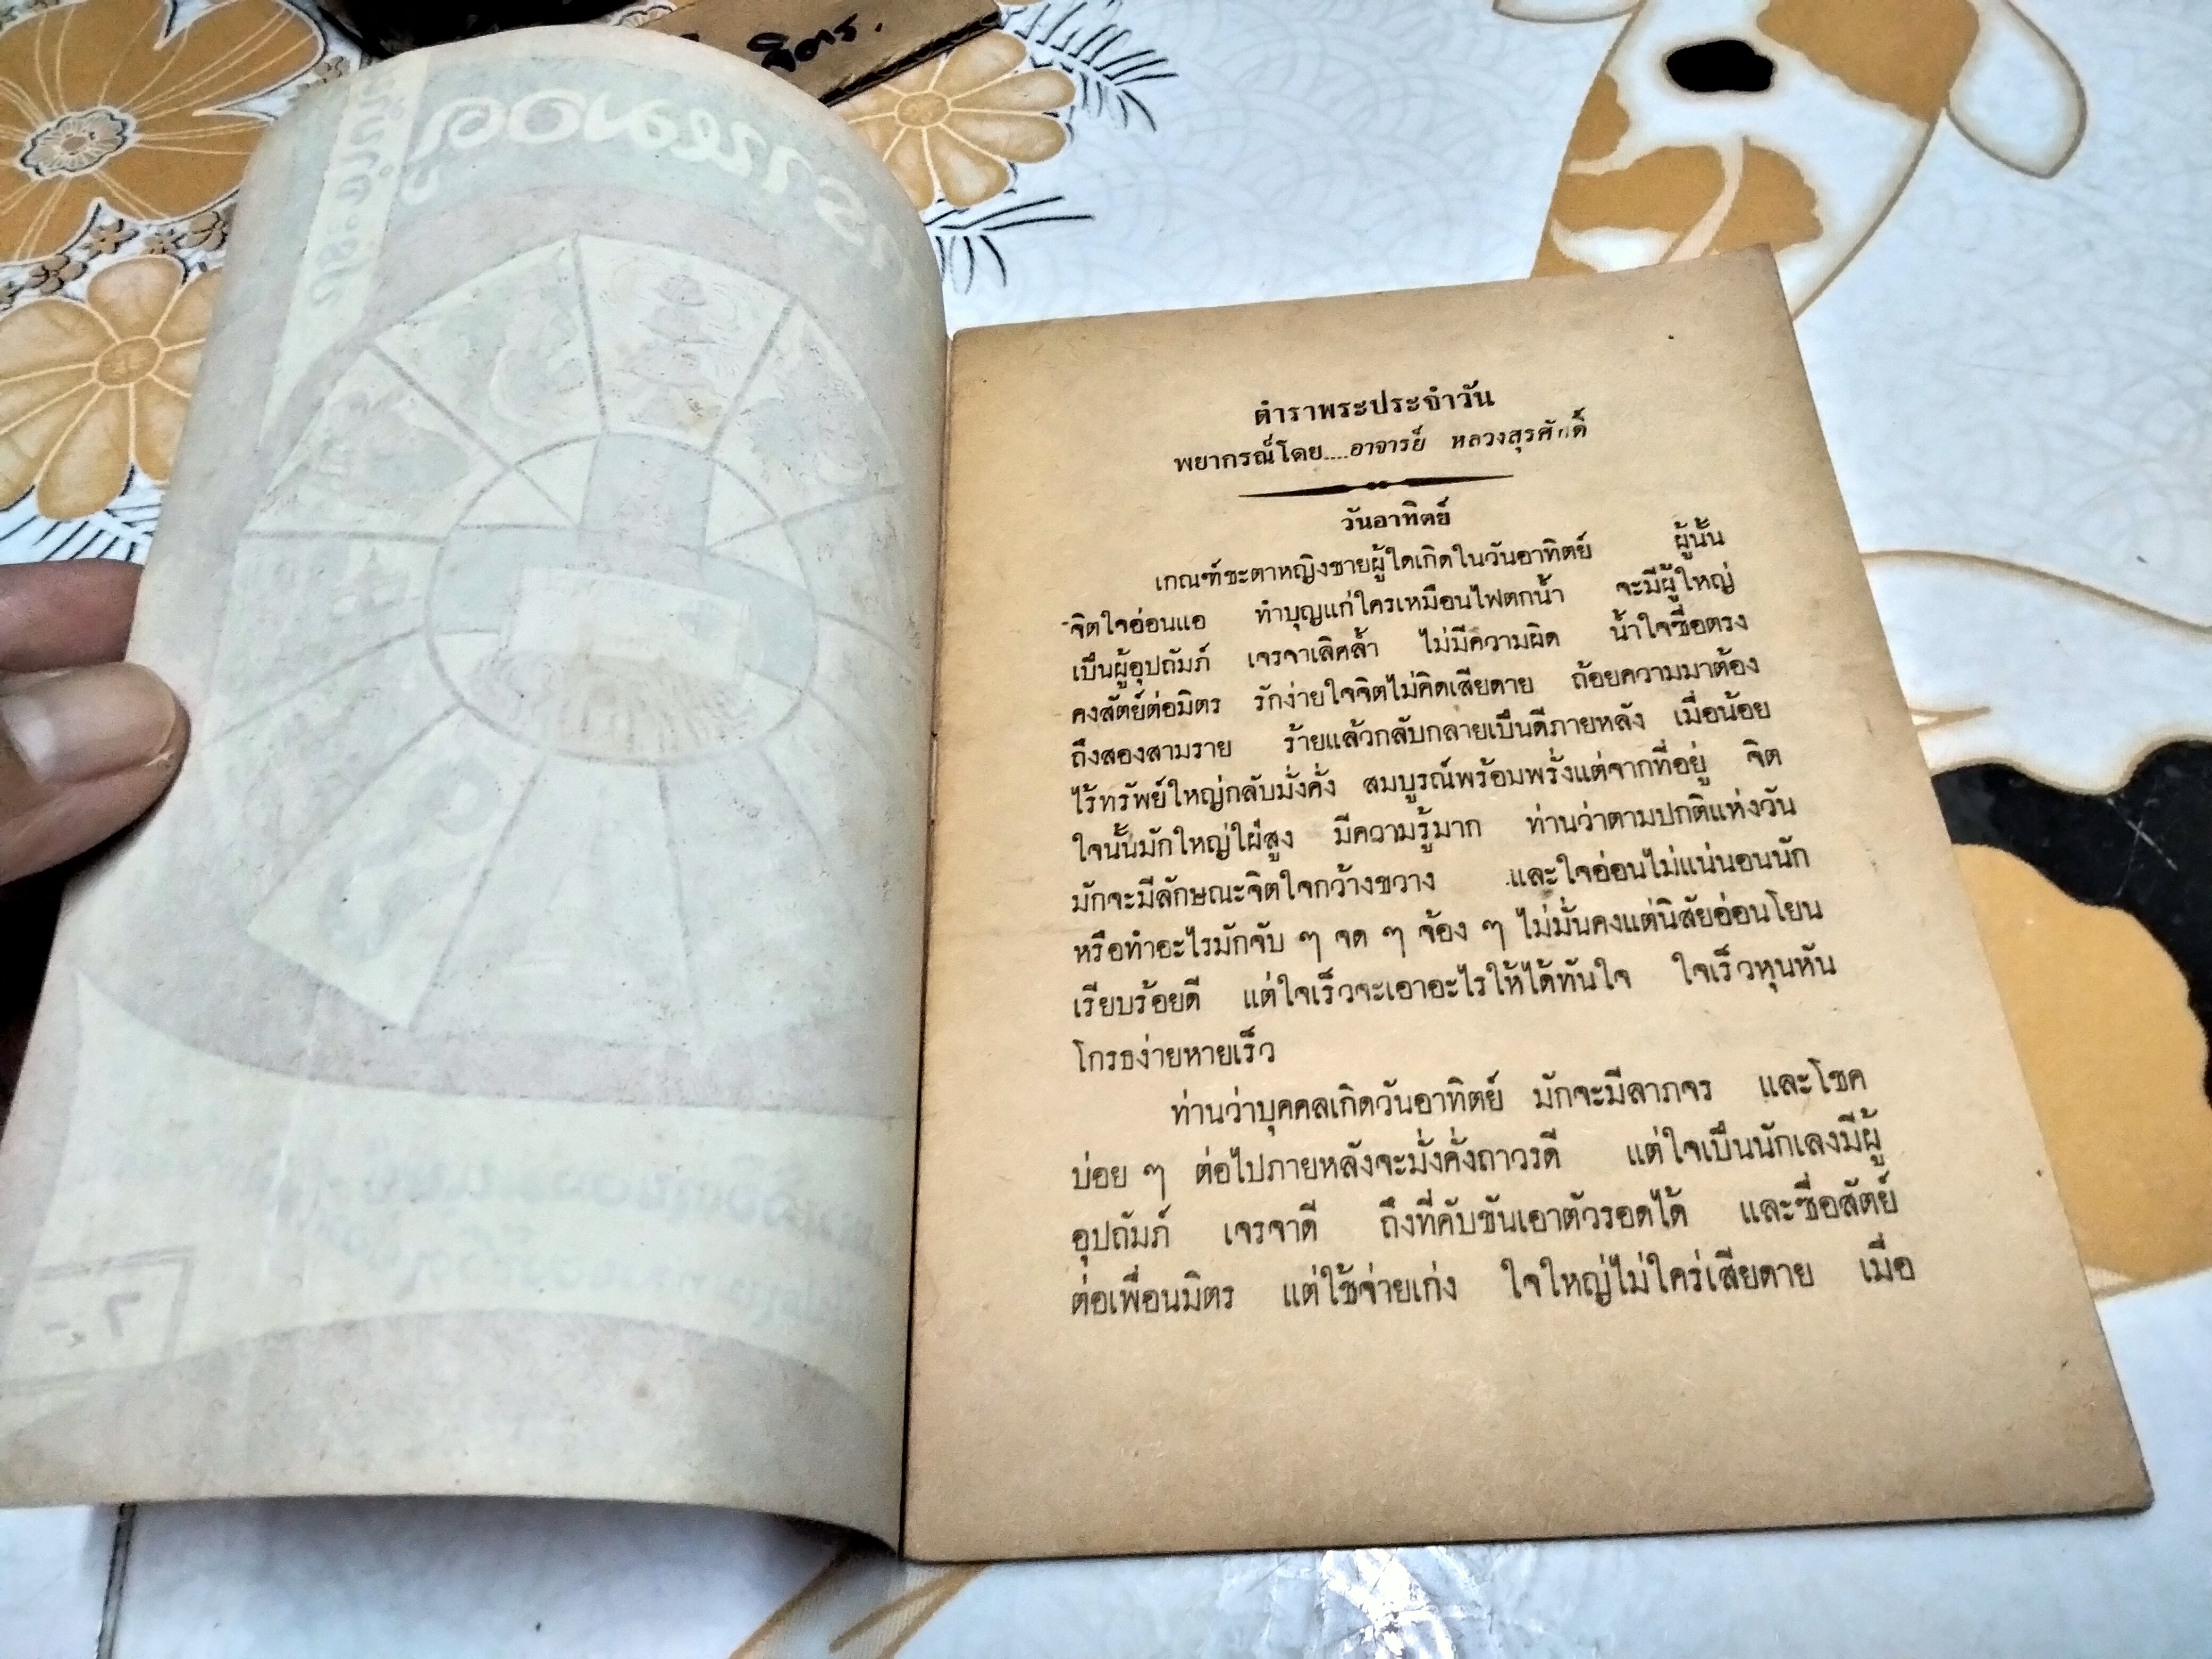 จิตร.
ตำราพระประจำวัน
พยากรณ์โดย....อาจารย์ หลวงสุรศักดิ์
วันอาทิตย์
เกณฑ์ชะตาหญิงชายผู้ใดเกิดในวันอาทิตย์ ผู้นั้น
จิตใจอ่อนแอ ทำบุญแก่ใครเหมือนไฟตกน้ำ จะมีผู้ใหญ่
เป็นผู้อุปถัมภ์ เจรจาเลิศล้ำ ไม่มีความผิด น้ำใจซื่อตรง
คงสัตย์ต่อมิตร รักง่ายใจจิตไม่คิดเสียดาย ถ้อยความมาต้อง
ถึงสองสามราย ร้ายแล้วกลับกลายเป็นดีภายหลัง เมื่อน้อย
ไร้ทรัพย์ใหญ่กลับมั่งคั่ง สมบูรณ์พร้อมพรั่งแต่จากที่อยู่ จิต
ใจนั้นมักใหญ่ใฝ่สูง มีความรู้มาก ท่านว่าตามปกติแห่งวัน
มักจะมีลักษณะจิตใจกว้างขวาง และใจอ่อนไม่แน่นอนนัก
หรือทำอะไรมักจับ ๆ จด ๆ จ้อง ๆ ไม่มั่นคงแต่นิสัยอ่อนโยน
เรียบร้อยดี แต่ใจเร็วจะเอาอะไรให้ได้ทันใจ ใจเร็วหุนหัน
โกรธง่ายหายเร็ว
ท่านว่าบุคคลเกิดวันอาทิตย์ มักจะมีลาภจร และโชค
บ่อย ๆ ต่อไปภายหลังจะมั่งคั่งถาวรดี แต่ใจเป็นนักเลงมีผู้
อุปถัมภ์ เจรจาดี ถึงที่คับขันเอาตัวรอดได้ และซื่อสัตย์
ต่อเพื่อนมิตร แต่ใช้จ่ายเก่ง ใจใหญ่ไม่ใคร่เสียดาย เมื่อ